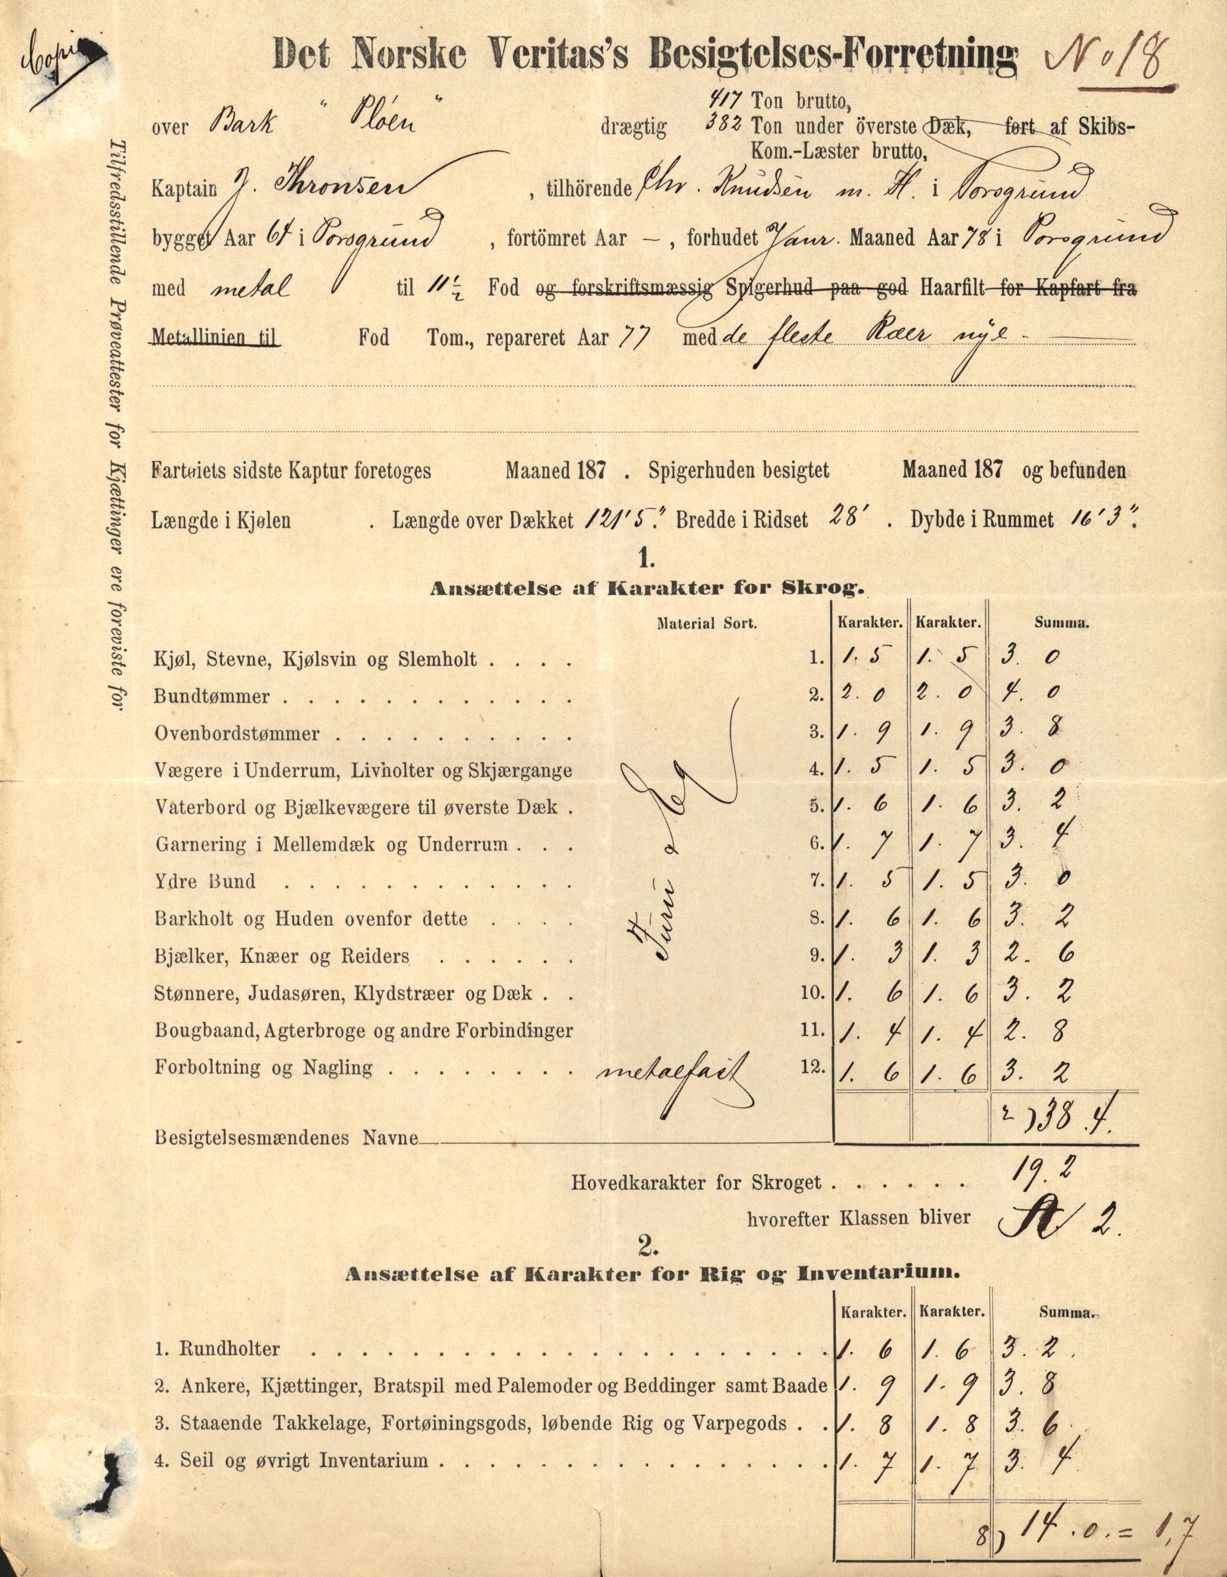 Copie
Det Norske Veritas's Besigtelses-Forretning No 18
417 Ton brutto,
over Bark "Pløen" drægtig 382 Ton under överste Dæk, ført af Skibs-
Kom.-Læster brutto,
Kaptain J. Thronsen, tilhörende Chr. Knudsen m. H. i Porsgrund
bygget Aar 64 i Porsgrund, fortömret Aar —, forhudet Janr. Maaned Aar 78 i Porsgrund
med metal til 11 1/2 Fod og forskriftsmæssig Spigerhud paa god Haarfilt for Kapfart fra
Metallinien til Fod Tom., repareret Aar 77 med de fleste Ræer nye. —
Fartøiets sidste Kaptur foretoges Maaned 187 . Spigerhuden besigtet Maaned 187 og befunden
Længde i Kjølen . Længde over Dækket 121'5". Bredde i Ridset 28' . Dybde i Rummet 16'3".
1.
Ansættelse af Karakter for Skrog.
Material Sort. Karakter. Karakter. Summa.
Kjøl, Stevne, Kjølsvin og Slemholt . . . . 1. 1. 5 1. 5 3. 0
Bundtømmer . . . . . . . . . . . . 2. 2. 0 2. 0 4. 0
Ovenbordstømmer . . . . . . . . . . 3. 1. 9 1. 9 3. 8
Vægere i Underrum, Livholter og Skjærgange 4. 1. 5 1. 5 3. 0
Vaterbord og Bjælkevægere til øverste Dæk . 5. 1. 6 1. 6 3. 2
Garnering i Mellemdæk og Underrum . . . 6. 1. 7 1. 7 3. 4
Ydre Bund . . . . . . . . . . . . 7. 1. 5 1. 5 3. 0
Barkholt og Huden ovenfor dette . . . . 8. 1. 6 1. 6 3. 2
Bjælker, Knæer og Reiders . . . . . . 9. 1. 3 1. 3 2. 6
Stønnere, Judasøren, Klydstræer og Dæk . . 10. 1. 6 1. 6 3. 2
Bougbaand, Agterbroge og andre Forbindinger 11. 1. 4 1. 4 2. 8
Forboltning og Nagling . . . . . . . . metalfast 12. 1. 6 1. 6 3. 2
Furu & Eg
2) 38.4.
Besigtelsesmændenes Navne
Hovedkarakter for Skroget . . . . . . 19.2
hvorefter Klassen bliver A 2.
2.
Ansættelse af Karakter for Rig og Inventarium.
Karakter. Karakter. Summa.
1. Rundholter . . . . . . . . . . . . . . . . . . . . 1. 6 1. 6 3. 2.
2. Ankere, Kjættinger, Bratspil med Palemoder og Beddinger samt Baade 1. 9 1. 9 3. 8
3. Staaende Takkelage, Fortøiningsgods, løbende Rig og Varpegods . . 1. 8 1. 8 3. 6
4. Seil og øvrigt Inventarium . . . . . . . . . . . . . . . 1. 7 1. 7 3. 4
8) 14.0. = 1,7
Tilfredsstillende Prøveattester for Kjættinger ere foreviste for